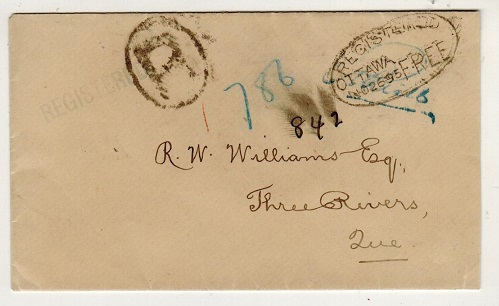 R
REGISTERED
OTTAWA FREE
NO 26 95
REGISTERED
786
842
R. W. Williams Esq.,
Three Rivers,
Que.